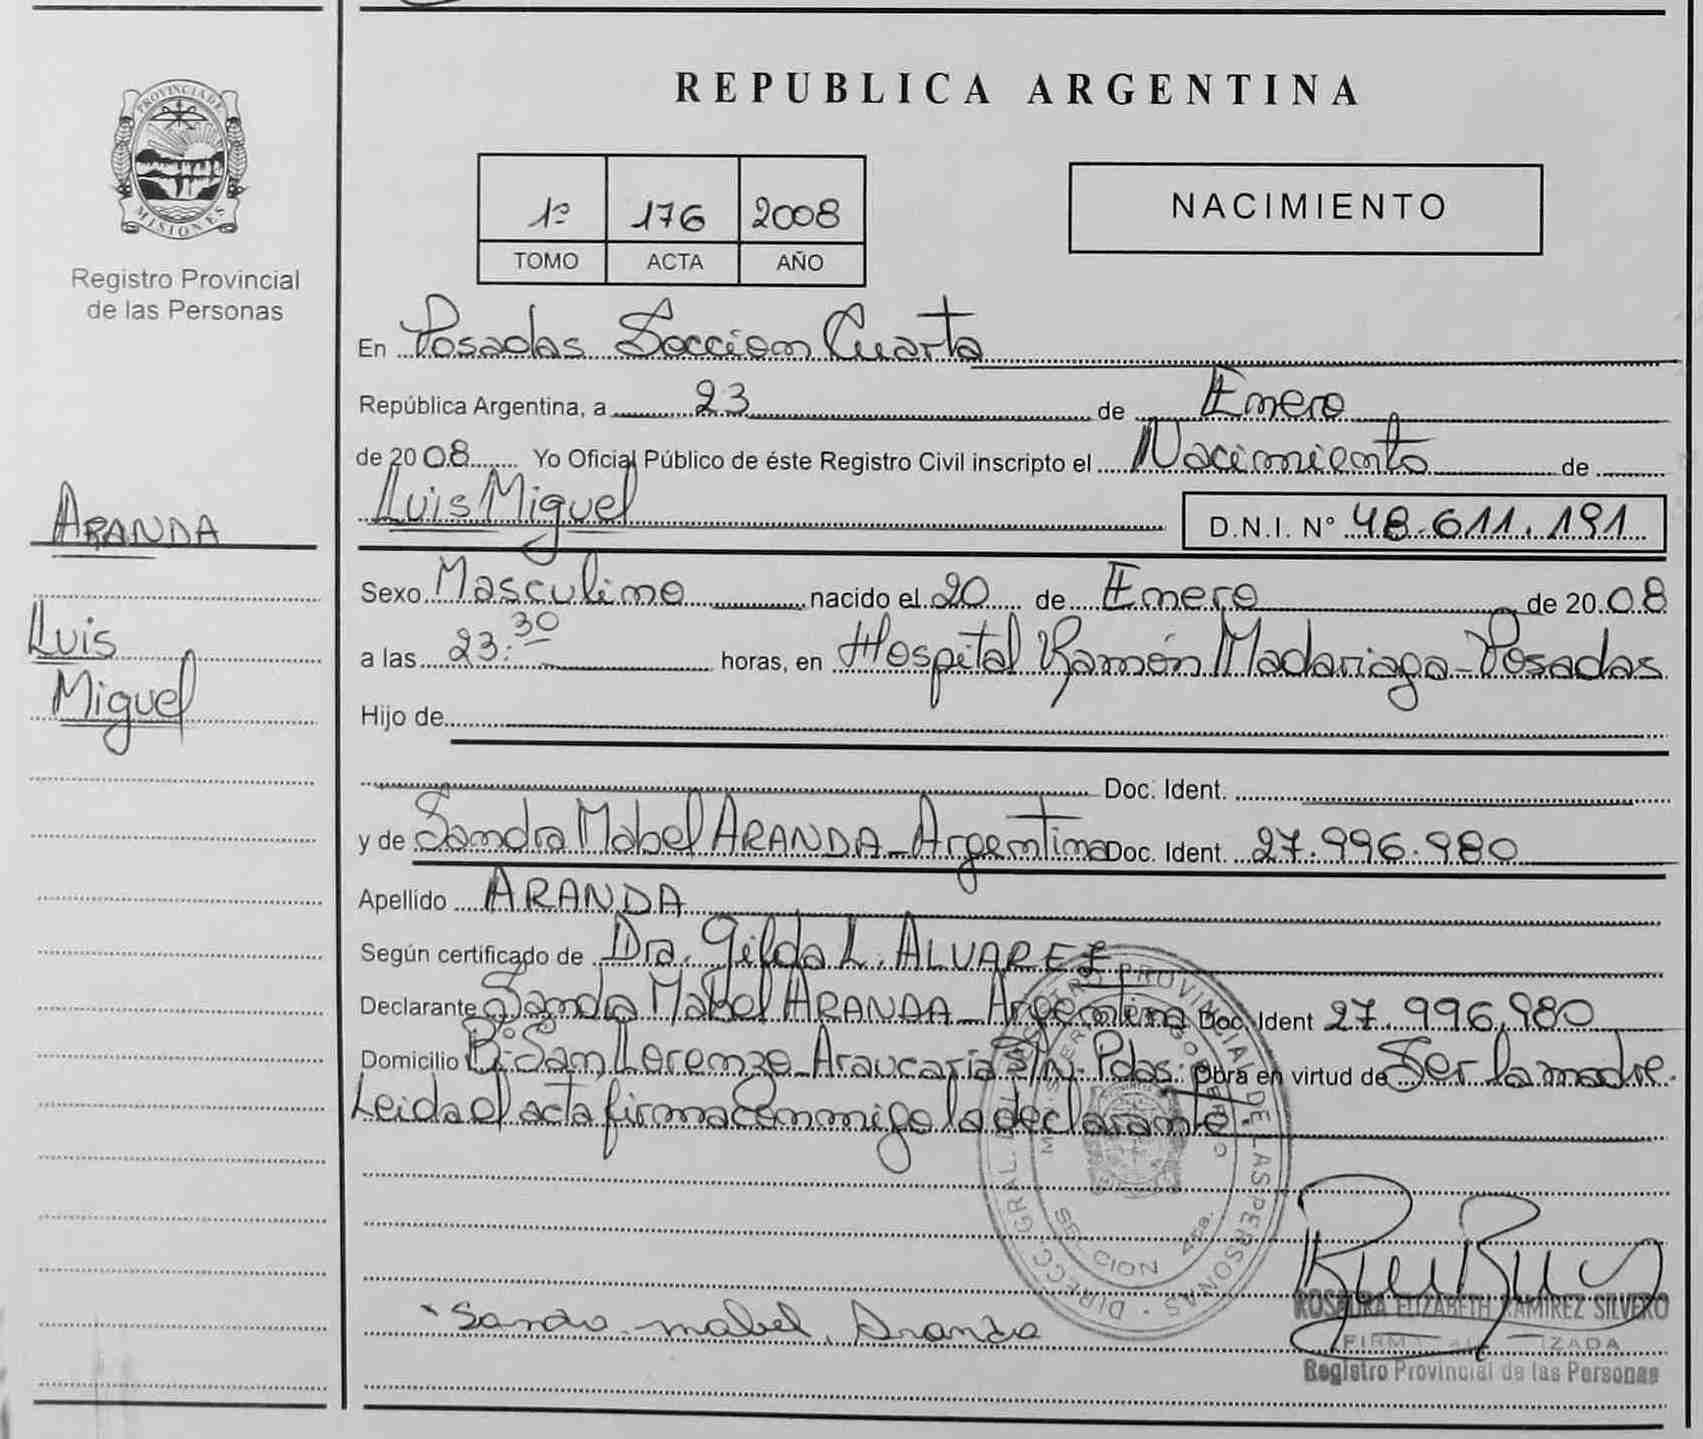 PROVINCIA DE
MISIONES
Registro Provincial
de las Personas
ARANDA
Luis
Miguel
REPUBLICA ARGENTINA
1º 176 2008
TOMO ACTA AÑO
NACIMIENTO
En Posadas Seccion Cuarta
República Argentina, a 23 de Enero
de 2008 Yo Oficial Público de éste Registro Civil inscripto el Nacimiento de
Luis Miguel D.N.I. Nº 48.611.191
Sexo Masculino nacido el 20 de Enero de 2008
a las 23:30 horas, en Hospital Ramón Madariaga - Posadas
Hijo de
Doc. Ident.
y de Sandra Mabel ARANDA - Argentina Doc. Ident. 27.996.980
Apellido ARANDA
Según certificado de Dra. Gilda L. ALVAREZ
Declarante Sandra Mabel ARANDA - Argentina Doc. Ident 27.996.980
Domicilio Bº San Lorenzo - Araucaria S/N. Pdas. Obra en virtud de Ser la madre.
Leida el acta firma conmigo la declarante.
DIRECC. GRAL. DEL REGISTRO PROVINCIAL DE LAS PERSONAS
SECCION 4ta.
Sandra mabel Aranda
ROSALIRA ELIZABETH RAMIREZ SILVERO
FIRMA AUTORIZADA
Registro Provincial de las Personas